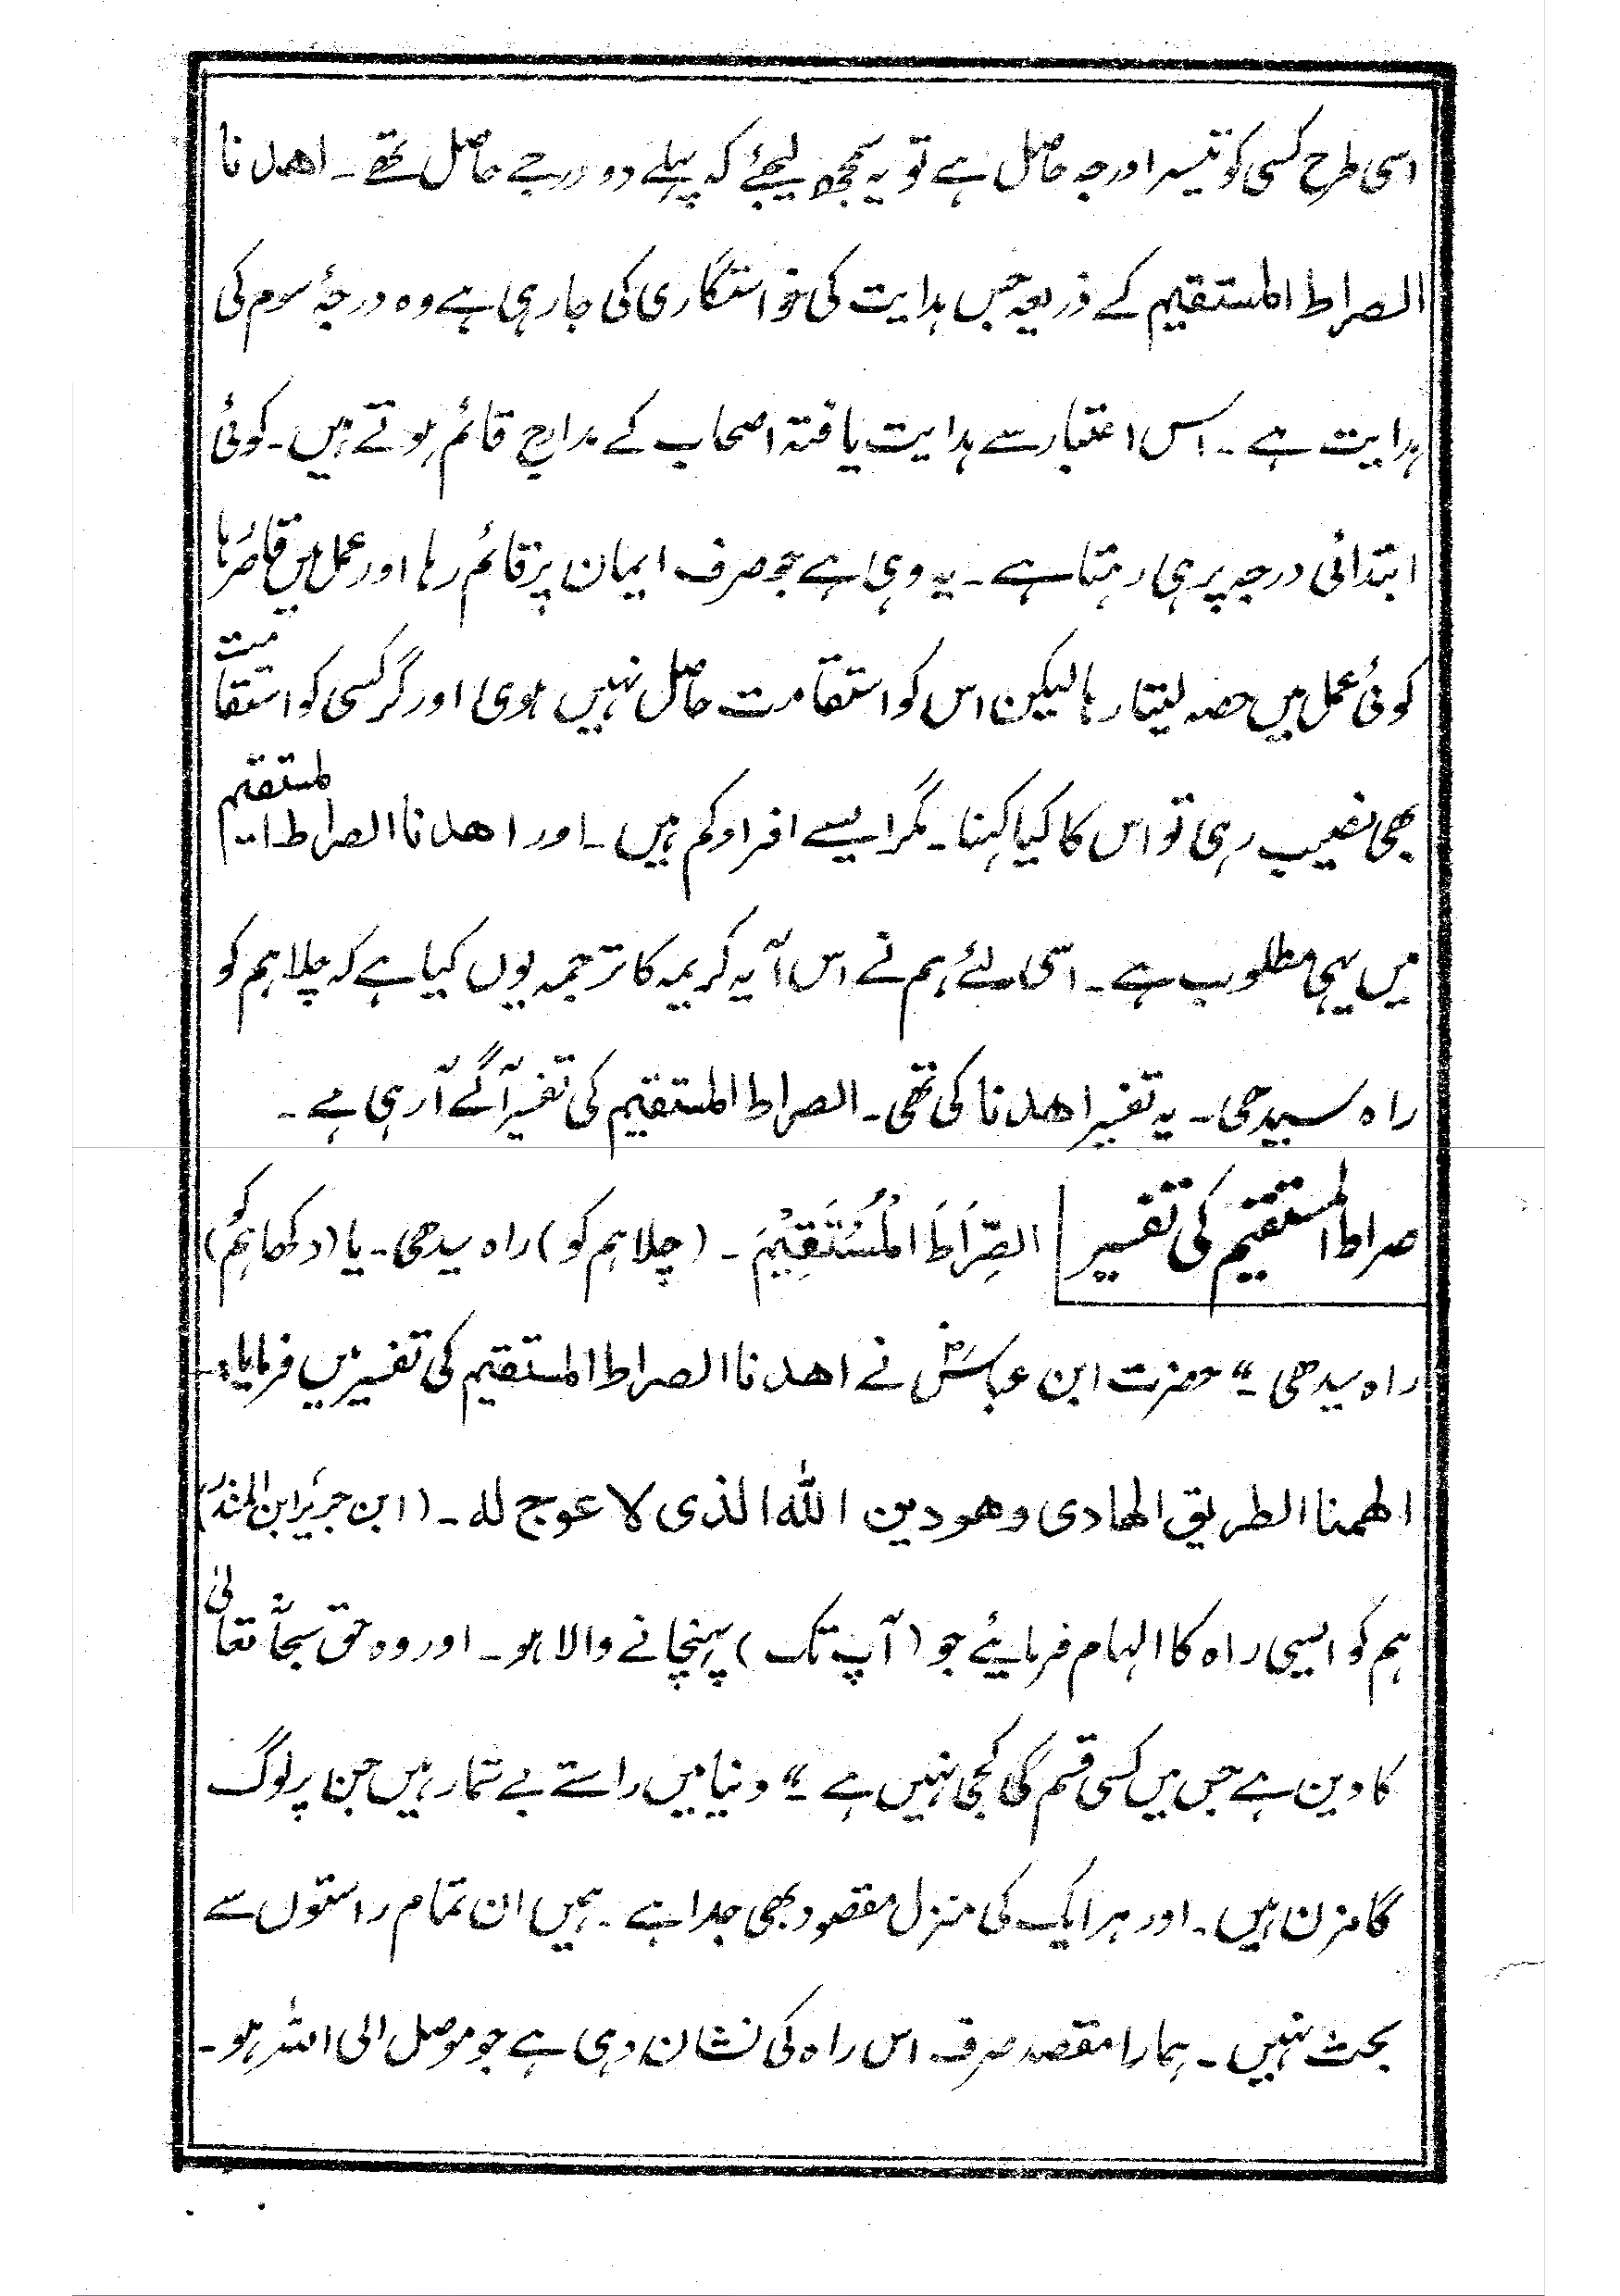 اسی طرح کسی کو تیسرا درجہ حاصل ہے تو یہ سمجھ لیجئے کہ پہلے دو درجے حاصل تھے ۔ اھدنا
الصراط المستقیم کے ذریعہ جس ہدایت کی خواستگاری کی جارہی ہے وہ درجۂ سوم کی
ہدایت ہے ۔ اس اعتبار سے ہدایت یافتہ اصحاب کے مدارج قائم ہوتے ہیں ۔ کوئی
ابتدائی درجہ پر ہی رہتا ہے ۔ یہ وہی ہے جو صرف ایمان پر قائم رہا اور عمل میں قاصر رہا
کوئی عمل میں حصہ لیتا رہا لیکن اس کو استقامت حاصل نہیں ہوی اور گر کسی کو استقامت
بھی نصیب رہی تو اس کا کیا کہنا ۔ مگر ایسے افراد کم ہیں ۔ اور اھدنا الصراط المستقیم
میں یہی مطلوب ہے ۔ اسی لئے ہم نے اس آیہ کریمہ کا ترجمہ یوں کیا ہے کہ چلا ہم کو
راہ سیدھی ۔ یہ تفسیر اھدنا کی تھی ۔ الصراط المستقیم کی تفسیر آگے آرہی ہے ۔
صراط المستقیم کی تفسیر الصِّرَاطَ الْمُسْتَقِیْمَ ۔ (چلا ہم کو) راہ سیدھی ۔ یا (دکھا ہم کو)
راہ سیدھی ۔" حضرت ابن عباسؓ نے اھدنا الصراط المستقیم کی تفسیر میں فرمایا :۔
الھمنا الطریق الھادی وھو دین اللہ الذی لا عوج لہ ۔ (ابن جریر ابن المنذر)
ہم کو ایسی راہ کا الہام فرمائیے جو (آپ تک) پہنچانے والا ہو ۔ اور وہ حق سبحانہٗ تعالیٰ
کا دین ہے جس میں کسی قسم کی کجی نہیں ہے ۔" دنیا میں راستے بے شمار ہیں جن پر لوگ
گامزن ہیں ۔ اور ہر ایک کی منزل مقصود بھی جدا ہے ۔ ہمیں ان تمام راستوں سے
بحث نہیں ۔ ہمارا مقصد صرف اس راہ کی نشان دہی ہے جو موصل الی اللہ ہو ۔